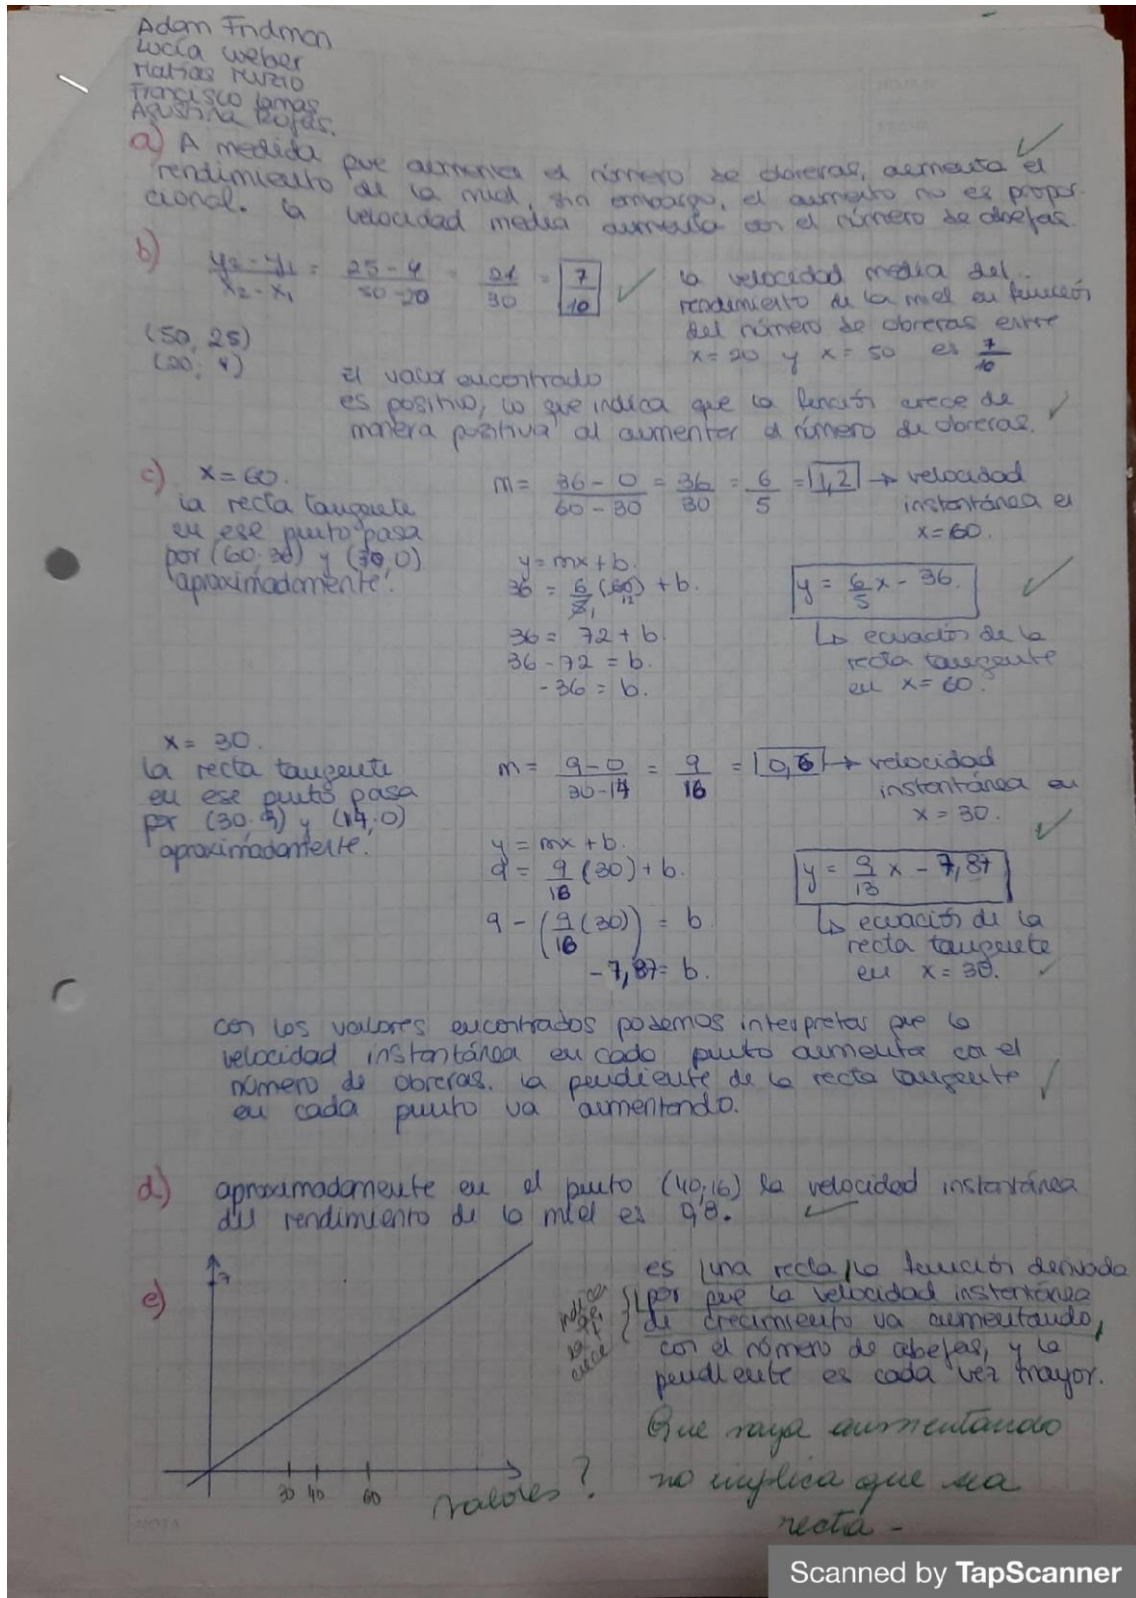 Adam Fridman
Lucía Weber
Matías Muzio
Francisco Lamas
Agustina Rojas.
a) A medida que aumenta el número de obreras, aumenta el
rendimiento de la miel, sin embargo, el aumento no es propor
cional. La velocidad media aumenta con el número de abejas.
b) y2 - y1 / x2 - x1 = 25 - 4 / 50 - 20 = 21 / 30 = 7 / 10
(50, 25)
(20, 4)
La velocidad media del
rendimiento de la miel en función
del número de obreras entre
x = 20 y x = 50 es 7/10
El valor encontrado
es positivo, lo que indica que la función crece de
manera positiva al aumentar el número de obreras.
c) x = 60.
La recta tangente
en ese punto pasa
por (60; 36) y (30, 0)
aproximadamente.
m = 36 - 0 / 60 - 30 = 36 / 30 = 6 / 5 = 1,2 → velocidad
instantánea el
x = 60.
y = mx + b.
36 = 6/5 (60) + b.
1 12
36 = 72 + b
36 - 72 = b.
- 36 = b.
y = 6/5 x - 36.
↳ ecuación de la
recta tangente
en x = 60.
x = 30.
La recta tangente
en ese punto pasa
por (30; 9) y (14; 0)
aproximadamente.
m = 9 - 0 / 30 - 14 = 9 / 16 = 0,6 → velocidad
instantánea en
x = 30.
y = mx + b.
9 = 9/16 (30) + b.
9 - (9/16 (30)) = b
- 7,87 = b.
y = 9/13 x - 7,87
↳ ecuación de la
recta tangente
en x = 30.
con los valores encontrados podemos interpretar que la
velocidad instantánea en cada punto aumenta con el
número de obreras. La pendiente de la recta tangente
en cada punto va aumentando.
d) aproximadamente en el punto (40; 16) la velocidad instantánea
del rendimiento de la miel es 0,8.
e)
30 40 60
valores ?
es una recta la función derivada
por que la velocidad instantánea
de crecimiento va aumentando,
con el número de abejas, y la
pendiente es cada vez mayor.
indica
que
la
crece
Que vaya aumentando
no implica que sea
recta -
Scanned by TapScanner